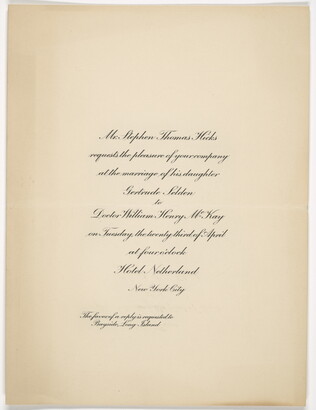 Mr. Stephen Thomas Hicks
requests the pleasure of your company
at the marriage of his daughter
Gertrude Selden
to
Doctor William Henry McKay
on Tuesday, the twenty third of April
at four o'clock
Hotel Netherland
New York City
The favor of a reply is requested to
Bayside, Long Island